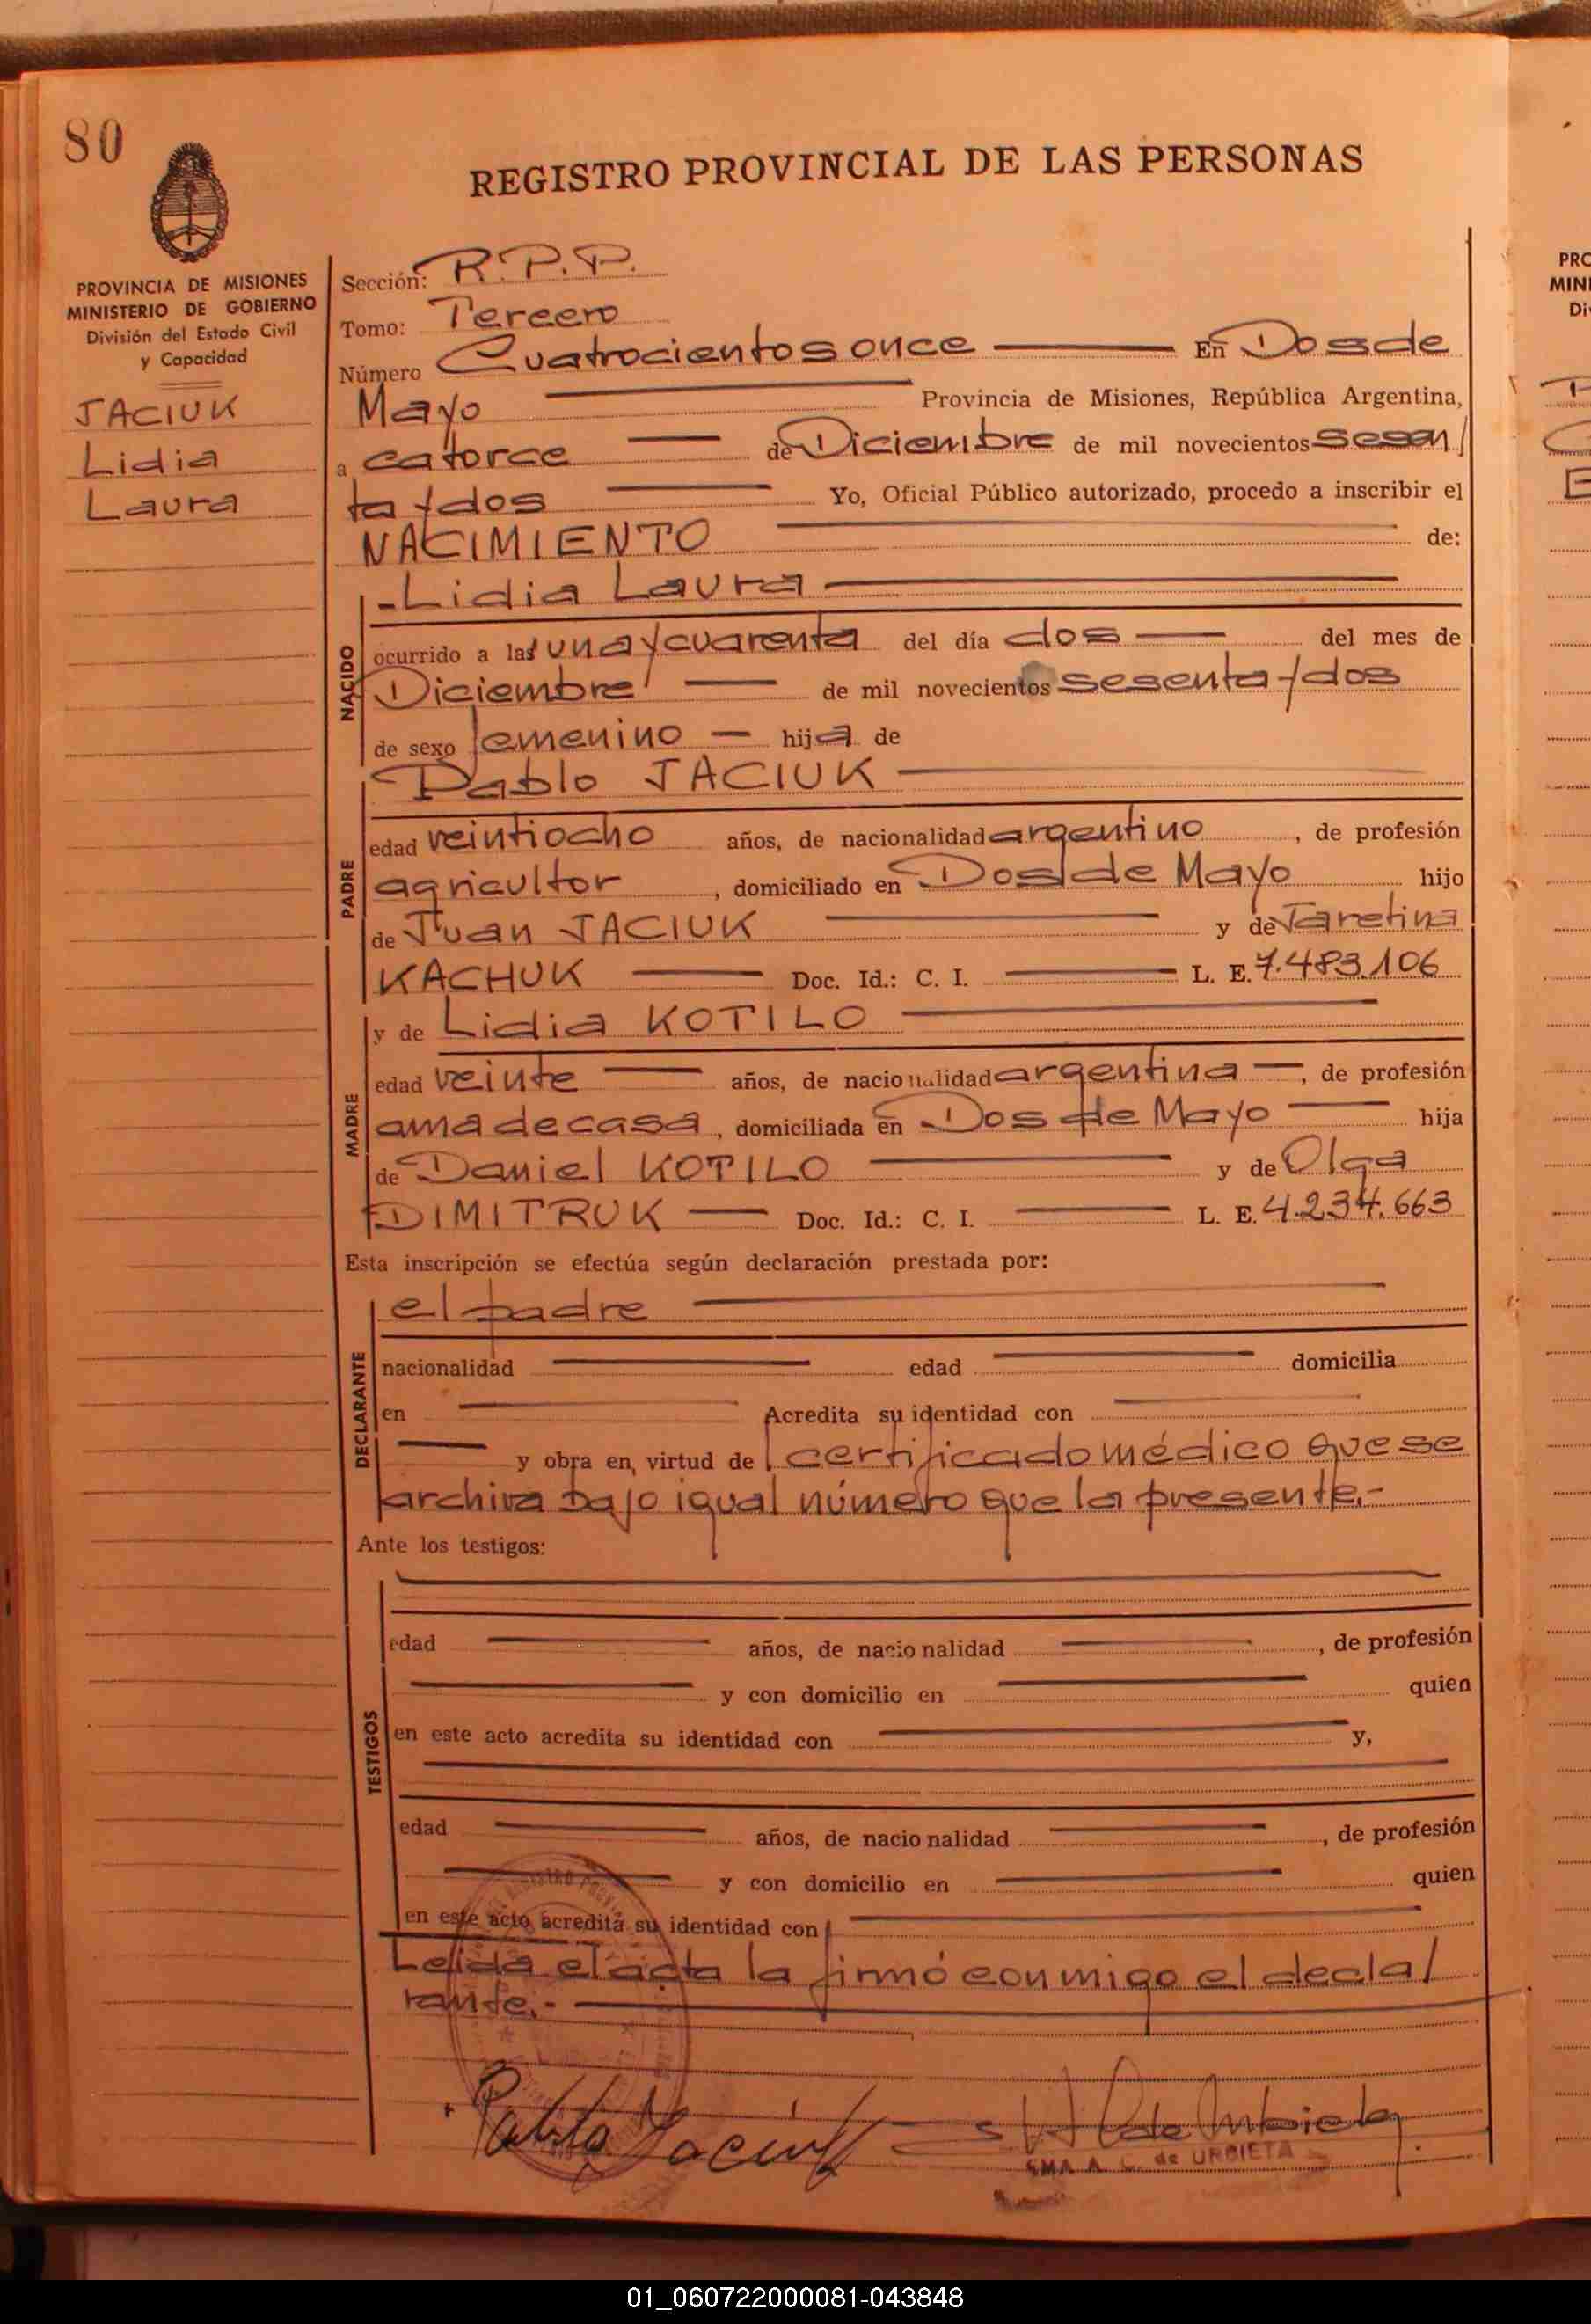 80
REGISTRO PROVINCIAL DE LAS PERSONAS
PROVINCIA DE MISIONES
MINISTERIO DE GOBIERNO
División del Estado Civil
y Capacidad
JACIUK
Lidia
Laura
Sección: R.P.P.
Tomo: Tercero
Número Cuatrocientos once En Dos de
Mayo Provincia de Misiones, República Argentina,
a catorce de Diciembre de mil novecientos sesen/
ta y dos Yo, Oficial Público autorizado, procedo a inscribir el
NACIMIENTO de:
-Lidia Laura
NACIDO
ocurrido a las una y cuarenta del día dos del mes de
Diciembre de mil novecientos sesenta y dos
de sexo femenino hija de
Pablo JACIUK
PADRE
edad veintiocho años, de nacionalidad argentino, de profesión
agricultor, domiciliado en Dos de Mayo hijo
de Juan JACIUK y de Taretina
KACHUK Doc. Id.: C. I. L. E. 7.483.106
y de Lidia KOTILO
MADRE
edad veinte años, de nacionalidad argentina, de profesión
ama de casa, domiciliada en Dos de Mayo hija
de Daniel KOTILO y de Olga
DIMITRUK Doc. Id.: C. I. L. E. 4.234.663
Esta inscripción se efectúa según declaración prestada por:
el padre
DECLARANTE
nacionalidad edad domicilia
en Acredita su identidad con
y obra en virtud de certificado médico que se
archiva bajo igual número que la presente.-
Ante los testigos:
TESTIGOS
edad años, de nacionalidad , de profesión
y con domicilio en quien
en este acto acredita su identidad con y,
edad años, de nacionalidad , de profesión
y con domicilio en quien
en este acto acredita su identidad con
Leída el acta la firmó conmigo el decla/
rante.-
Pablo Jaciuk
A. C. de URBIETA
PRO
MINI
Di
01_060722000081-043848